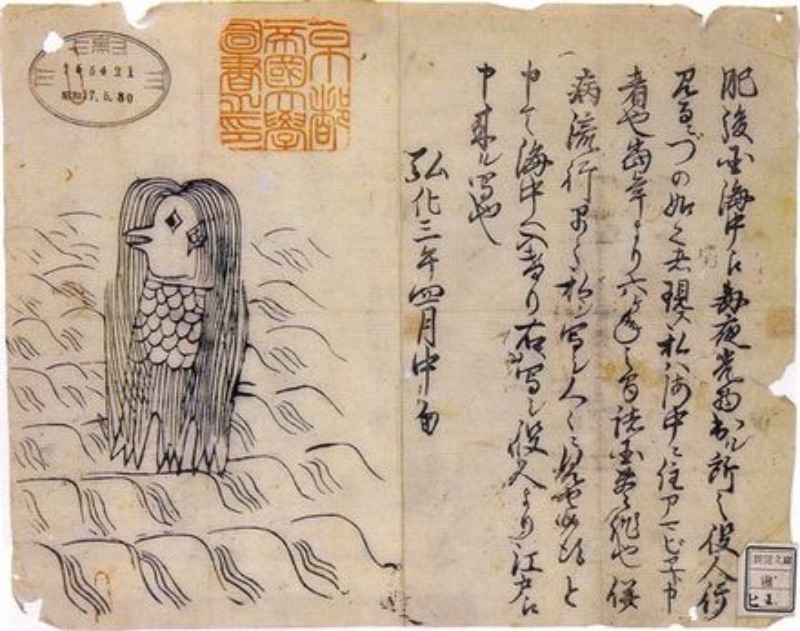 肥後国海中え毎夜光物出ル所之役人行
見るニづの如く者現ス私ハ海中ニ住アマビヱト申
者也當年より六ケ年之間諸国豊作也併
病流行早々私シ写シ人々ニ見セ候得と
申て海中へ入けり右写シ役人より江戸え
申来ル写也
弘化三年四月中旬
京都
帝國大學
圖書之印
165421
昭和17.5.30
新聞文庫